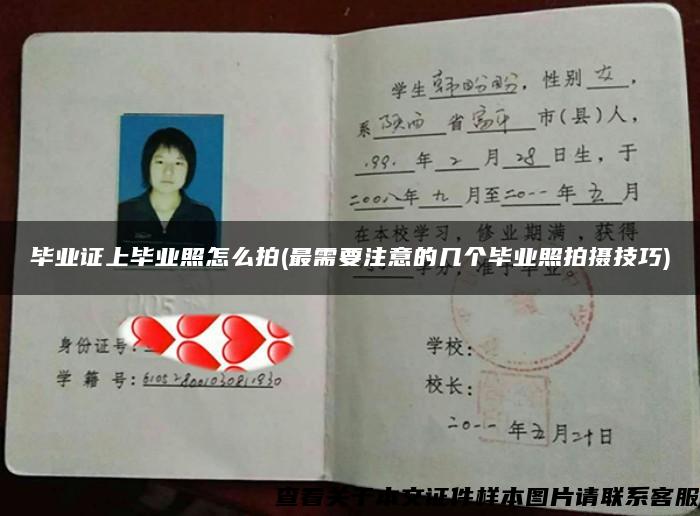 学生韩盼盼，性别女，
系陕西省富平市(县)人，
1991年2月28日生，于
二00八年九月至二0一一年五月
在本校学习，修业期满，获得
学分，准予毕业。
毕业证上毕业照怎么拍(最需要注意的几个毕业照拍摄技巧)
身份证号：
学 籍 号：
学校：
校长：
二0一一年五月二十日
查看关于本文证件样本图片请联系客服